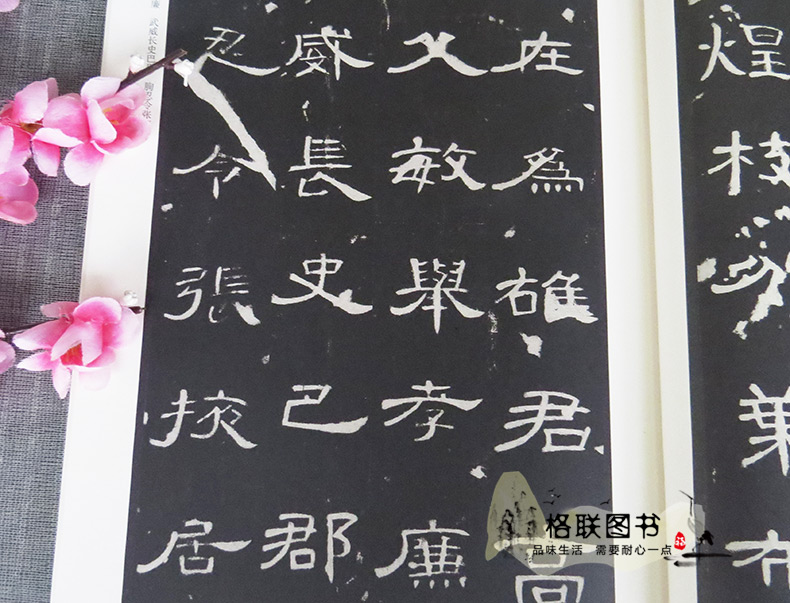 煌枝分葉布
在為雄君高
父敏舉孝廉
威長史巴郡
忍令張掖居
武威长史巴
令张
格联图书
品味生活 需要耐心一点